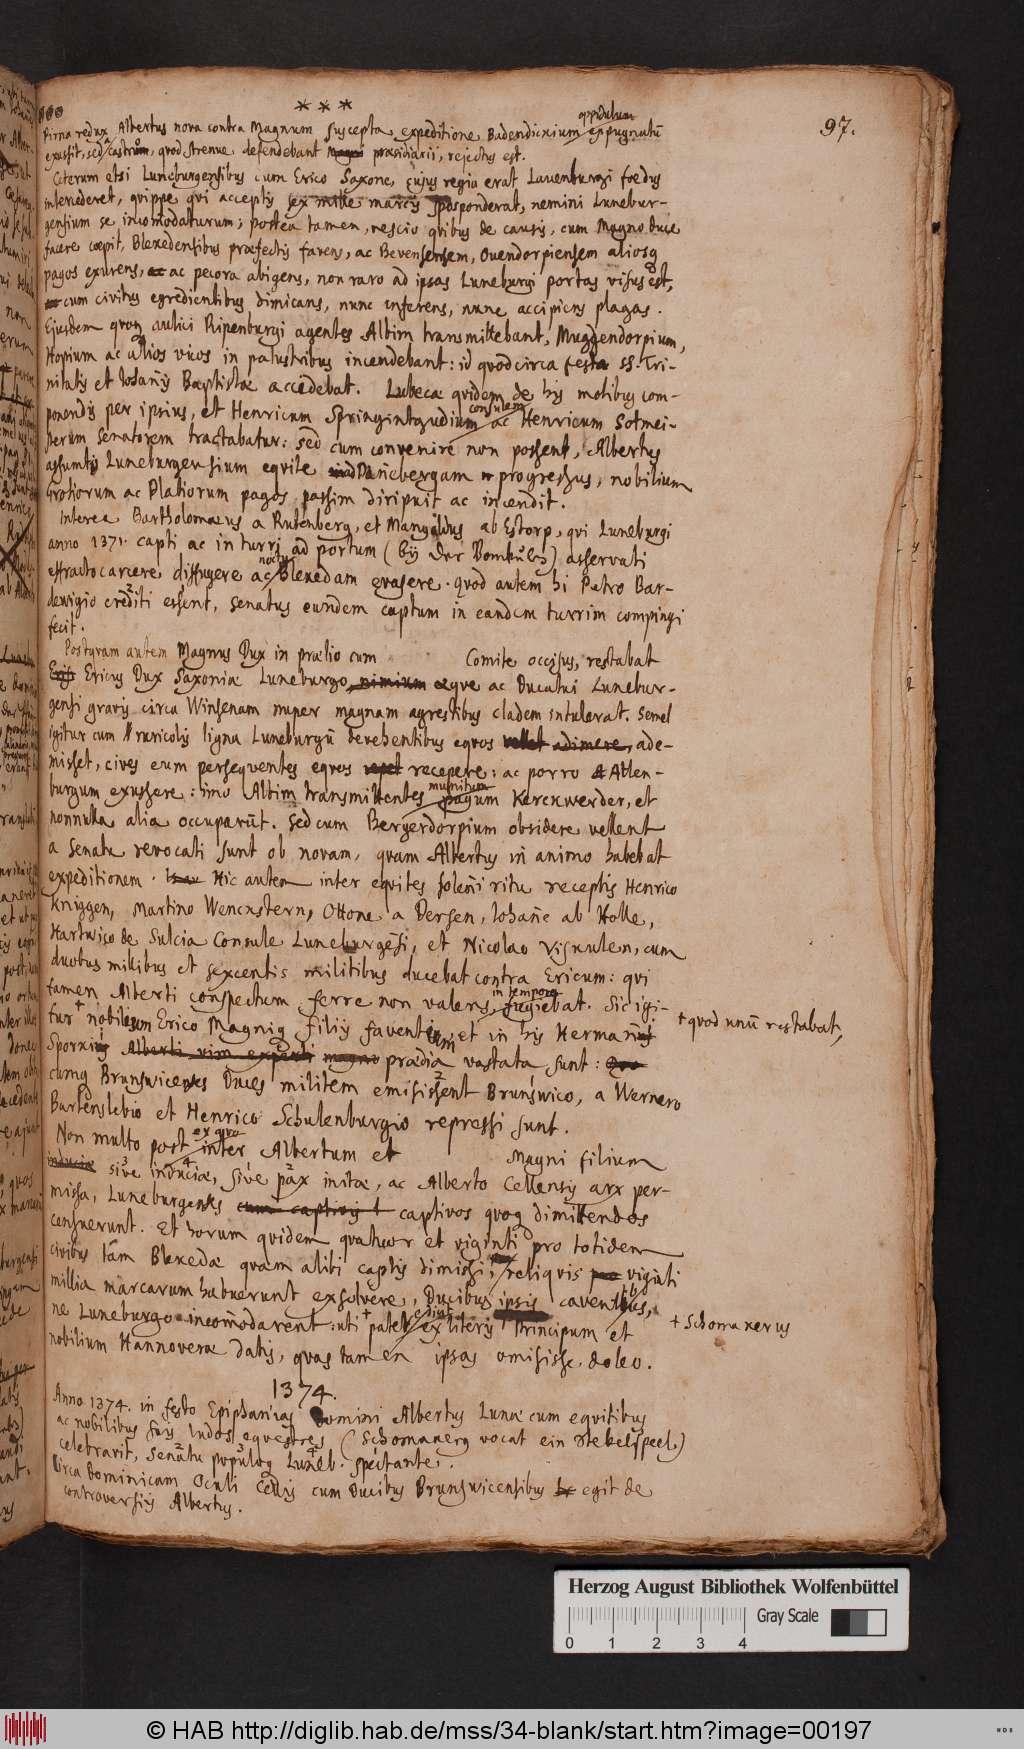 97.
* * *
Pirna redux Albertus nova contra Magnum suscepta expeditione Badendicxium oppidulum expugnatū
exussit, sed castrum, quod strenue defendebant Magni præsidiarii, rejectus est.
Ceterum etsi Luneburgensibus cum Erico Saxone, cujus regia erat Lauenburgi foedus
intercederet, quippe qvi acceptis sex mille marcis spoponderat, nemini Lunebur-
gensium se incomodaturum; postea tamen, nescio qvibus de causis, cum Magno duce
facere coepit, Blexedensibus præfectis favens, ac Bevensensem, Ouendorpiensem aliosq
pagos exurens, ac pecora abigens, non raro ad ipsas Luneburgi portas visus est,
cum civibus egredientibus dimicans, nunc inferens, nunc accipiens plagas.
Ejusdem quoq aulici Ripenburgi agentes Albim transmittebant, Muggendorpium,
Hopium ac alios vicos in palustribus incendebant: id quod circa festa SS. Tri-
nitatis et Iohan̄is Baptistæ accedebat. Lubeca quidem de his motibus com-
ponendis per ipsius, et Henricum Springintgudium consulem ac Henricum Sotmei-
perum Senatorem tractabatur: sed cum convenire non possent, Albertus
assumtis Luneburgensium eqvite Dan̄ebergam progressus, nobilium
Grotiorum ac Platiorum pagos passim diripuit ac incendit.
Interea Bartholomæus a Rutenberg, et Mangoldus ab Estorp, qvi Luneburgi
anno 1371. capti ac in turri ad portum (bij der Bomkuhls) asservati
effracto carcere diffugere ac noctu Blexedam evasere. quod autem hi Petro Bar-
dewigio crediti essent, Senatus eundem captum in eandem turrim compingi
fecit.
Postquam autem Magnus Dux in prælio cum Comite occisus, restabat
Ericus Dux Saxoniæ Luneburgo, nimium æque ac Ducatui Lunebur-
gensi gravis circa Winsenam nuper magnam agrestibus cladem intulerat. Semel
igitur cum ruricolis ligna Luneburgū devehentibus eqvos vellet adimere, ade-
misset, cives eum persequentes eqvos recepere: ac porro Atlen-
burgum exussere: imo Albim transmittentes munitum pagum Kerckwerder, et
nonnulla alia occuparūt. Sed cum Bergerdorpium obsidere vellent
a Senatu revocati sunt ob novam, quam Albertus in animo habebat
expeditionem. Hic autem inter eqvites solen̄i ritu receptis Henrico
Kniggen, Martino Wenckstern, Ottone a Dersen, Iohan̄e ab Holle,
Hartwico de Sulcia Consule Luneburgēsi, et Nicolao Viskulen, cum
duobus millibus et sexcentis militibus ducebat contra Ericum: qvi
tamen Alberti conspectum ferre non valens, in tempore fugiebat. Sic igi-
tur + nobilium Erico Magniq filiis faventium, et in his Herman̄i
Sporkii Alberti vim experti magno prædia vastata sunt:
cumq Brunswicenses Duces militem emisissent Brunswico, a Wernero
Bartenslebio et Henrico Schulenburgio repressi sunt.
+ quod unū restabat,
Non multo post ex quo inter Albertum et Magni filium
induciæ sive induciæ, sive pax initæ, ac Alberto Cellensis arx per-
missa, Luneburgenses cum captivis captivos quoq dimittendos
censuerunt. Et horum quidem quatuor et viginti pro totidem
civibus tam Blexedæ quam alibi captis dimissi, reliquis viginti
millia marcarum habuerunt exsolvere, Ducibus ipsis caventibus,
ne Luneburgo incom̄odarent: uti + patet ex literis Principum et
nobilium Hannoveræ datis, quas tamen ipsas omisisse doleo.
+ Schomakerus
1374.
Anno 1374. in festo Epiphanias Domini Albertus Lunæ cum eqvitibus
ac nobilibus suis ludos eqvestres (Schomakerq vocat ein stekelspeel.)
celebravit, Senatu populoq Luneb. spectante.
Circa Dominicam Oculi Cellis cum Ducibus Brunswicensibus egit de
controversiis Albertus.
Herzog August Bibliothek Wolfenbüttel
Gray Scale
0 1 2 3 4
© HAB http://diglib.hab.de/mss/34-blank/start.htm?image=00197